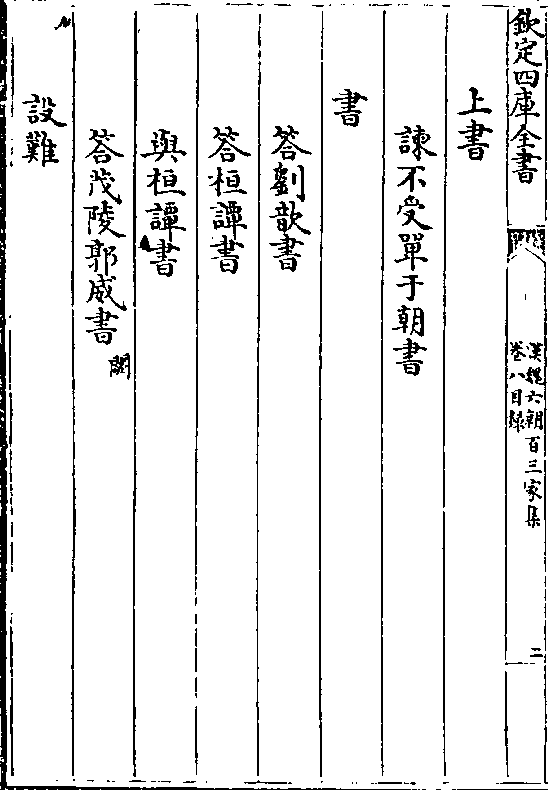 欽定四庫全書
漢魏六朝百三家集
卷八目錄
二
上書
諫不受單于朝書
書
答劉歆書
答桓譚書
與桓譚書
答茂陵郭威書闕
設難